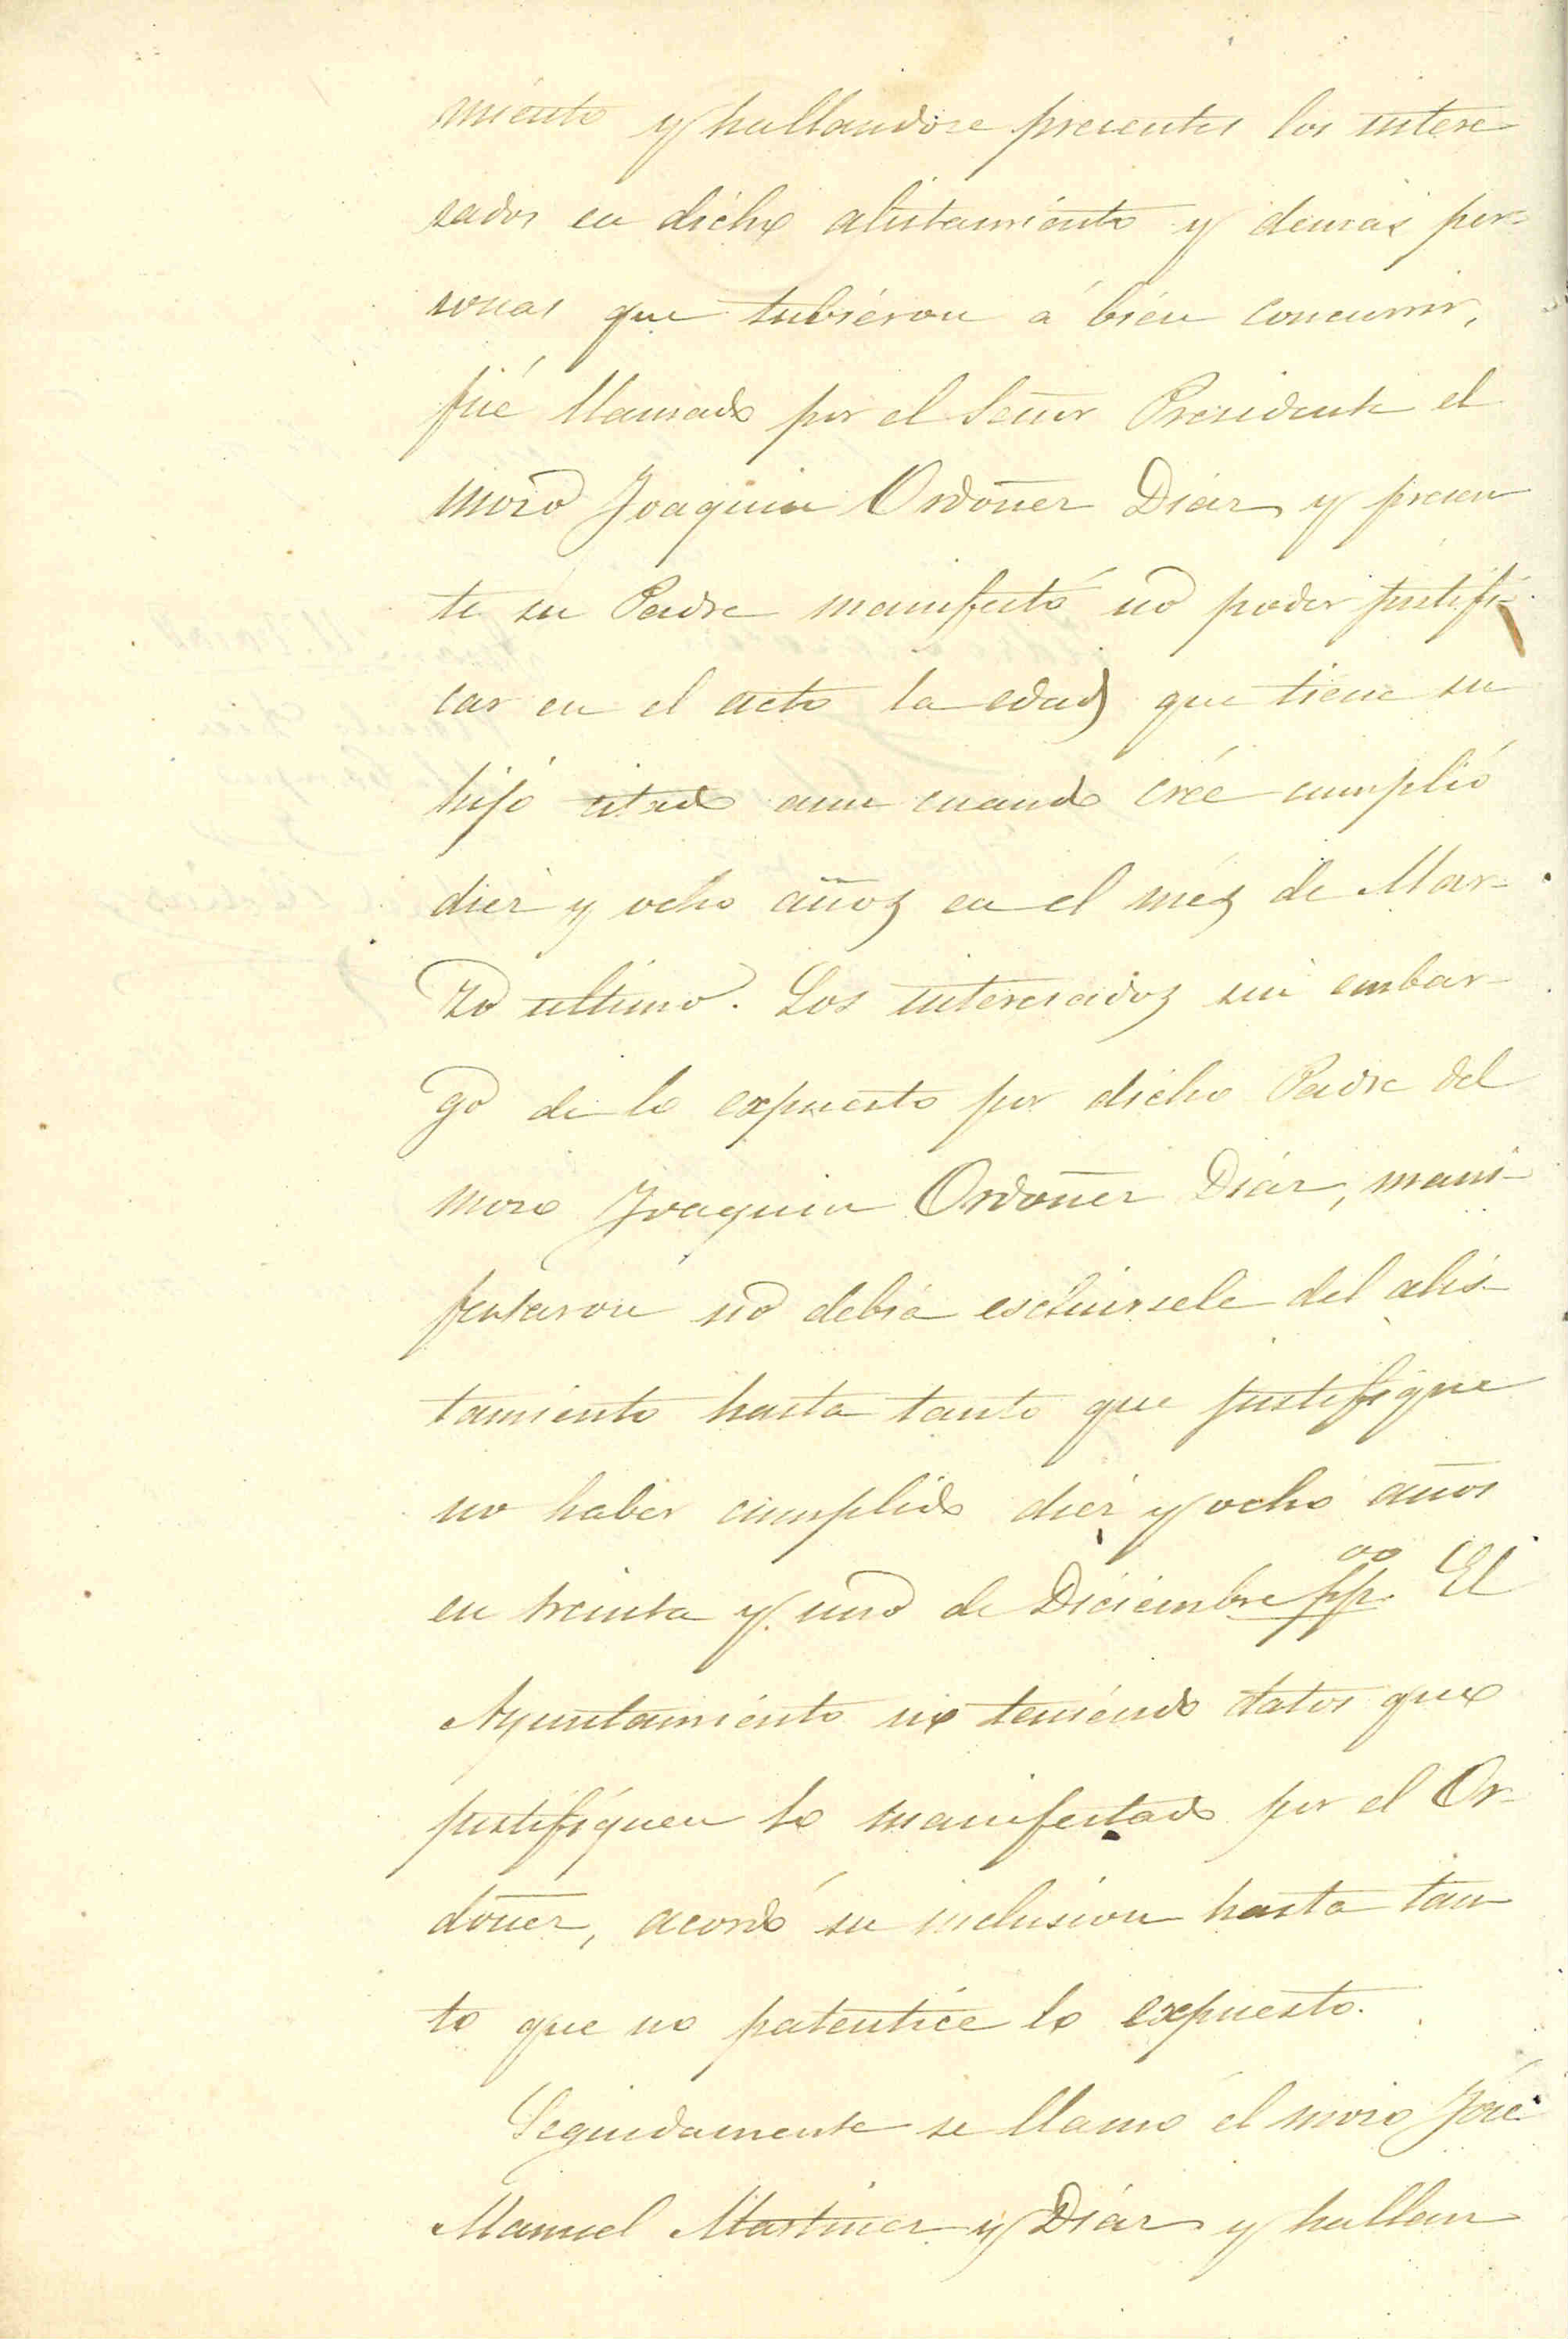 miento y hallandose presentes los intere
sados en dicho alistamiento y demás per=
sonas que tubiéron á bién concurrir,
fué llamado por el Señor Presidente el
mozo Joaquin Ordoñez Diáz y presen
te su Padre manifestó no poder justifi=
car en el acto la edad que tiene su
hijo citado aun cuando créé cumplió
diez y ocho años en el més de Mar-
zo ultimo. Los interesados sin embar-
go de lo expuesto por dicho Padre del
mozo Joaquin Ordoñez Diáz, mani-
festaron no debia escluirsele del alis-
tamiento hasta tanto que justifique
no haber cumplido diez y ocho años
en treinta y uno de Diciembre pp.oo El
Ayuntamiénto no teniéndo datos que
justifíquen lo manifestado por el Or-
doñez, acordó su inclusion hasta tan
to que no patentice lo expuesto.
Seguidamente se llamó él mozo José
Manuel Martinez y Diáz y hallan